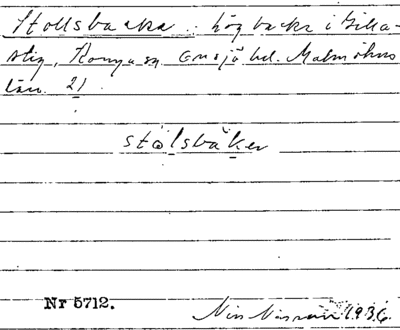 Stollsbacka : hög backe i Gilla-
stig, Konga sn Onsjö hd. Malmöhus
län. 21.
stålsbäker
Nr 5712.
Nils Nilsson 1936.